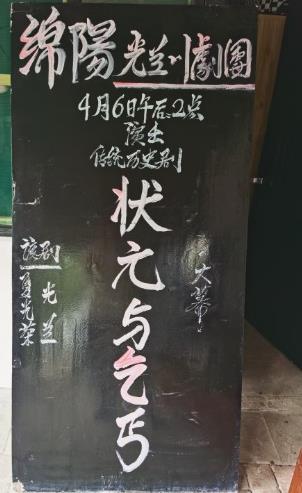 绵陽光兰川劇團
4月6日午后2点
演出
传统历史剧
状元与乞丐
大幕
光兰
夏光荣